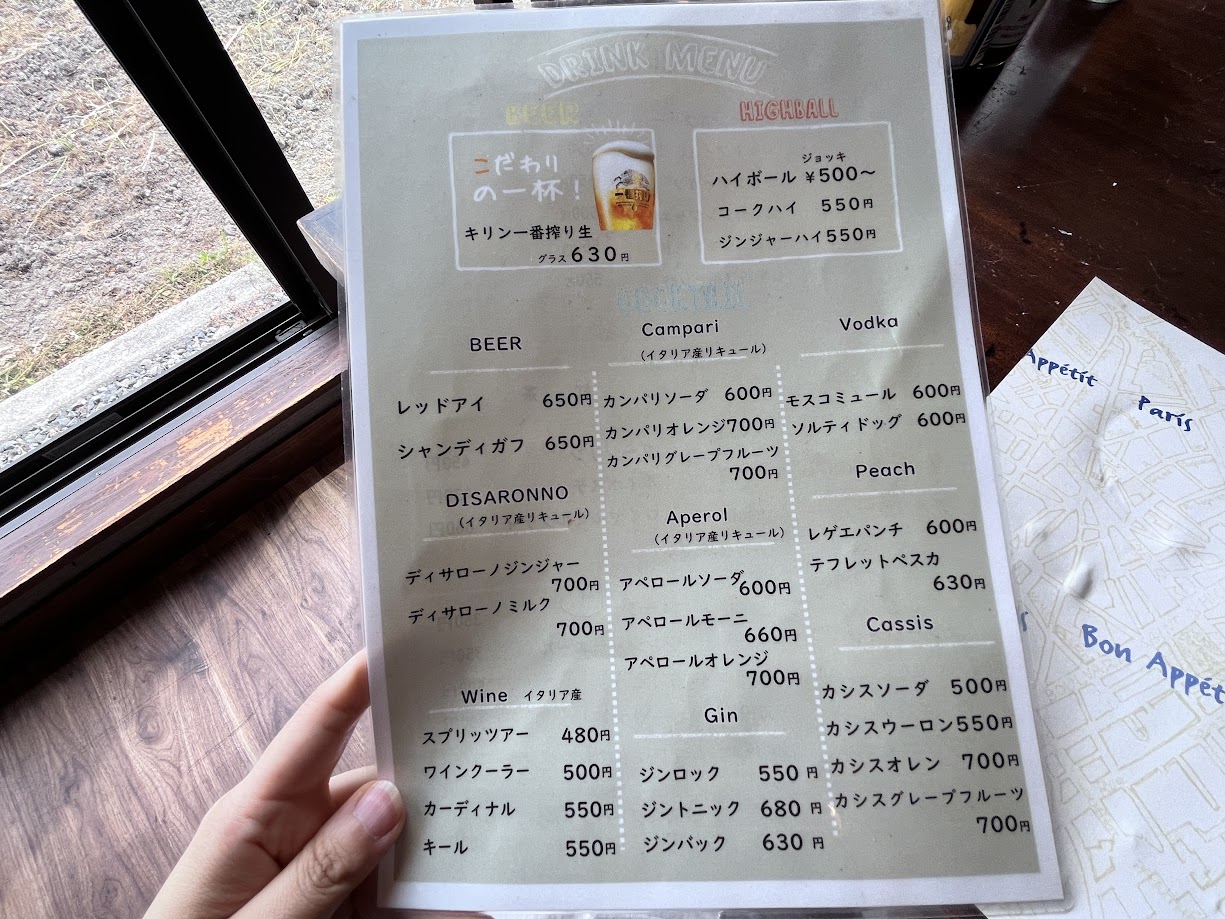 DRINK MENU
BEER
こだわり
の一杯!
キリン一番搾り生
グラス 630円
HIGHBALL
ジョッキ
ハイボール ¥500〜
コークハイ 550円
ジンジャーハイ 550円
COCKTAIL
BEER
レッドアイ 650円
シャンディガフ 650円
DISARONNO
(イタリア産リキュール)
ディサローノジンジャー
700円
ディサローノミルク
700円
Wine イタリア産
スプリッツアー 480円
ワインクーラー 500円
カーディナル 550円
キール 550円
Campari
(イタリア産リキュール)
カンパリソーダ 600円
カンパリオレンジ 700円
カンパリグレープフルーツ
700円
Aperol
(イタリア産リキュール)
アペロールソーダ
600円
アペロールモーニ
660円
アペロールオレンジ
700円
Gin
ジンロック 550円
ジントニック 680円
ジンバック 630円
Vodka
モスコミュール 600円
ソルティドッグ 600円
Peach
レゲエパンチ 600円
テフレットペスカ
630円
Cassis
カシスソーダ 500円
カシスウーロン 550円
カシスオレン 700円
カシスグレープフルーツ
700円
Appétit
Paris
Bon Appét